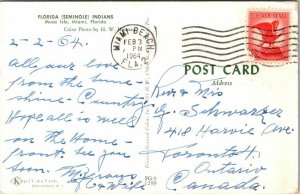 FLORIDA (SEMINOLE) INDIANS
Musa Isle, Miami, Florida
Color Photo by H. W.
MIAMI BEACH,
FEB 3
PM
1964
FLA.
U.S. AIR MAIL
2-2-64.
All our love
from the Sun-
shine-Country
Hope all is well
on the Home-
front. See you
soon.
& Wife
POST CARD
Address
Rev & Mrs
G. Schwarzer
418 Harvie Ave.
Toronto
Ontario
Canada